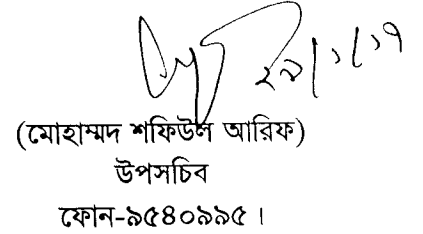 ২৯/১/১৭
(মোহাম্মদ শফিউল আরিফ)
উপসচিব
ফোন-৯৫৪০৯৯৫।